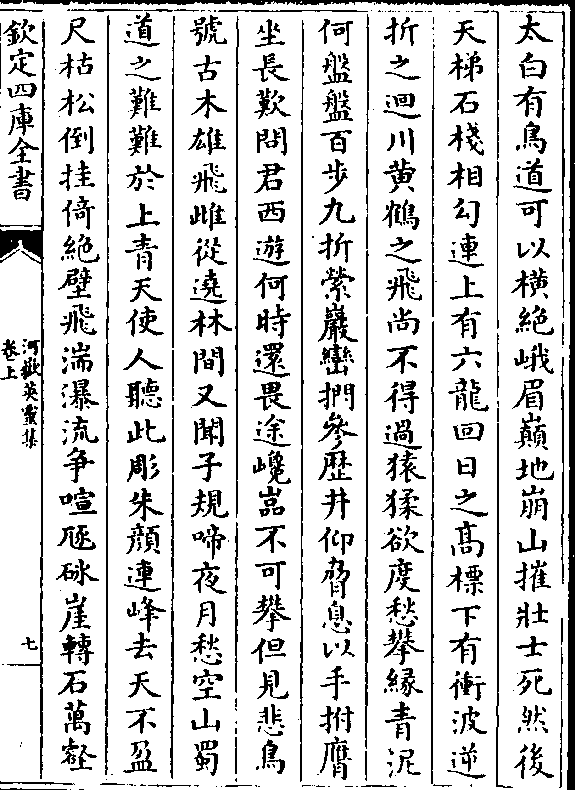 太白有鳥道可以橫絶峨眉巔地崩山摧壯士死然後
天梯石棧相勾連上有六龍回日之髙標下有衝波逆
折之迴川黄鶴之飛尚不得過猿猱欲度愁攀緣青泥
何盤盤百步九折縈巖巒捫參歴井仰脅息以手拊膺
坐長歎問君西遊何時還畏途巉嵓不可攀但見悲鳥
號古木雄飛雌從遶林間又聞子規啼夜月愁空山蜀
道之難難於上青天使人聽此彫朱顔連峰去天不盈
尺枯松倒挂倚絶壁飛湍瀑流争喧豗砯崖轉石萬壑
欽定四庫全書
河嶽英靈集
卷上
七